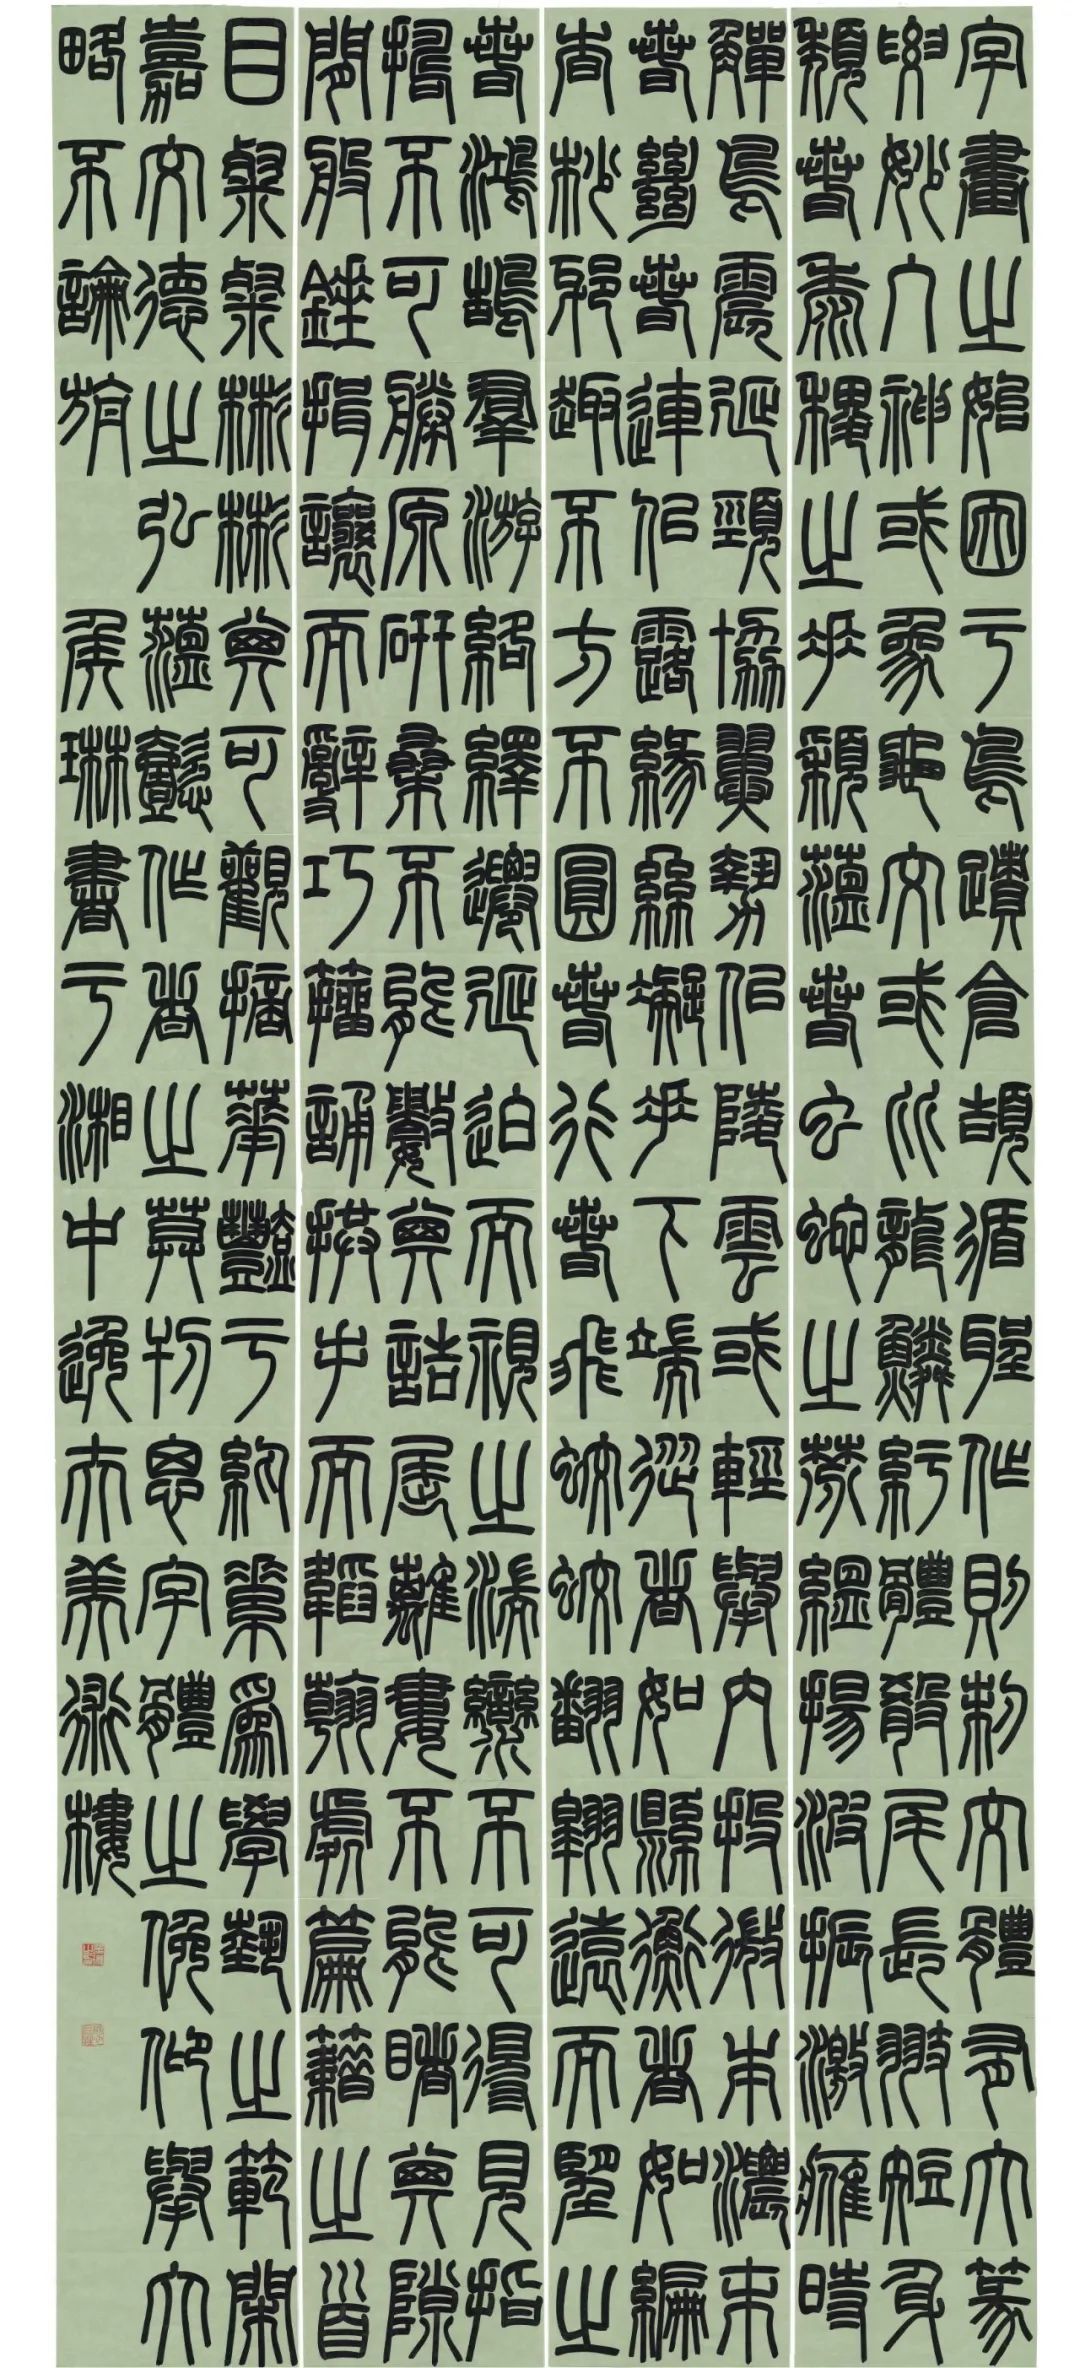 字畫之始因于鳥蹟倉頡循聖作則制文體有六篆
妙入神或象龜文或比龍鱗紆體放尾長翅短身
頹若黍稷之垂穎蘊若虫蛇之棼縕揚波振激鷹時
鳥震延頸協翼勢似陵雲或輕舉內投微本濃末
若絕若連似露緣絲凝垂下端從者如縣衡者如編
杳杪邪趣不方不圓若行若飛蚑蚑翾翾遠而望之
若鴻鵠羣游絡繹遷延迫而視之不可得見指
撝不可勝原研桑不能數其詰屈離婁不能睹其隙
間般錘揖讓而辭巧籀誦拱手而韜翰處篇籍之首
目粲粲彬彬其可觀摛華豔于紈素為學藝之範閑
嘉文德之弘蘊懿作者之莫刊思字體之俯仰舉大
略不論旃
侯琳書于湘中逸夫美術樓